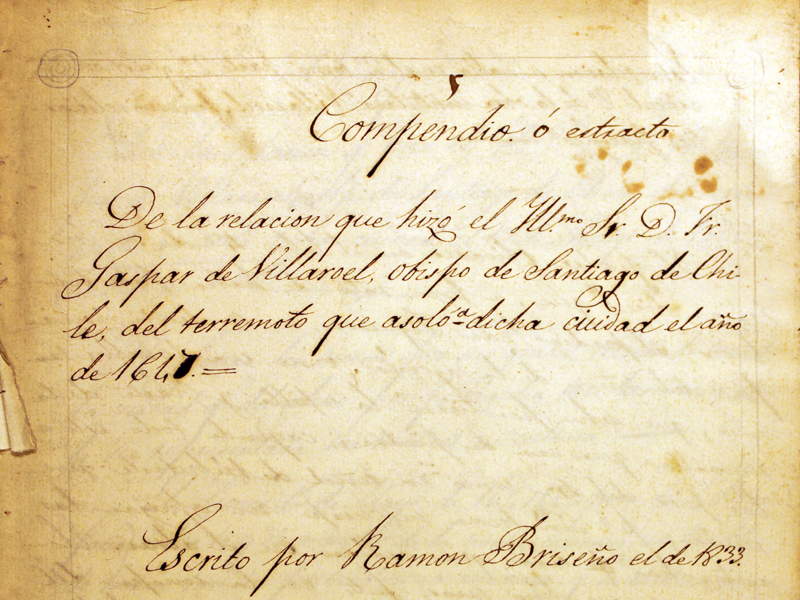 Compendio. ó estracto
De la relacion que hizó el Ill.mo Sr. D. Fr.
Gaspar de Villaroel, obispo de Santiago de Chi-
le, del terremoto que asoló a dicha ciuidad el año
de 1647.=
Escrito por Ramon Briseño el de 1833.